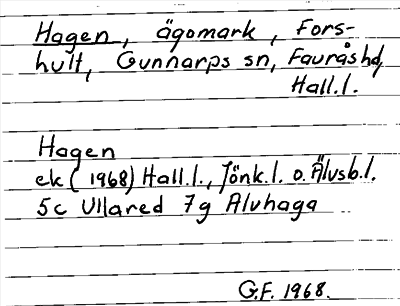 Hagen, ägomark, Fors-
hult, Gunnarps sn, Fauråshd,
Hall.l.
Hagen
ek (1968) Hall.l., Jönk.l. o. Älvsb.l.
5c Ullared 7g Alvhaga
G.F. 1968.